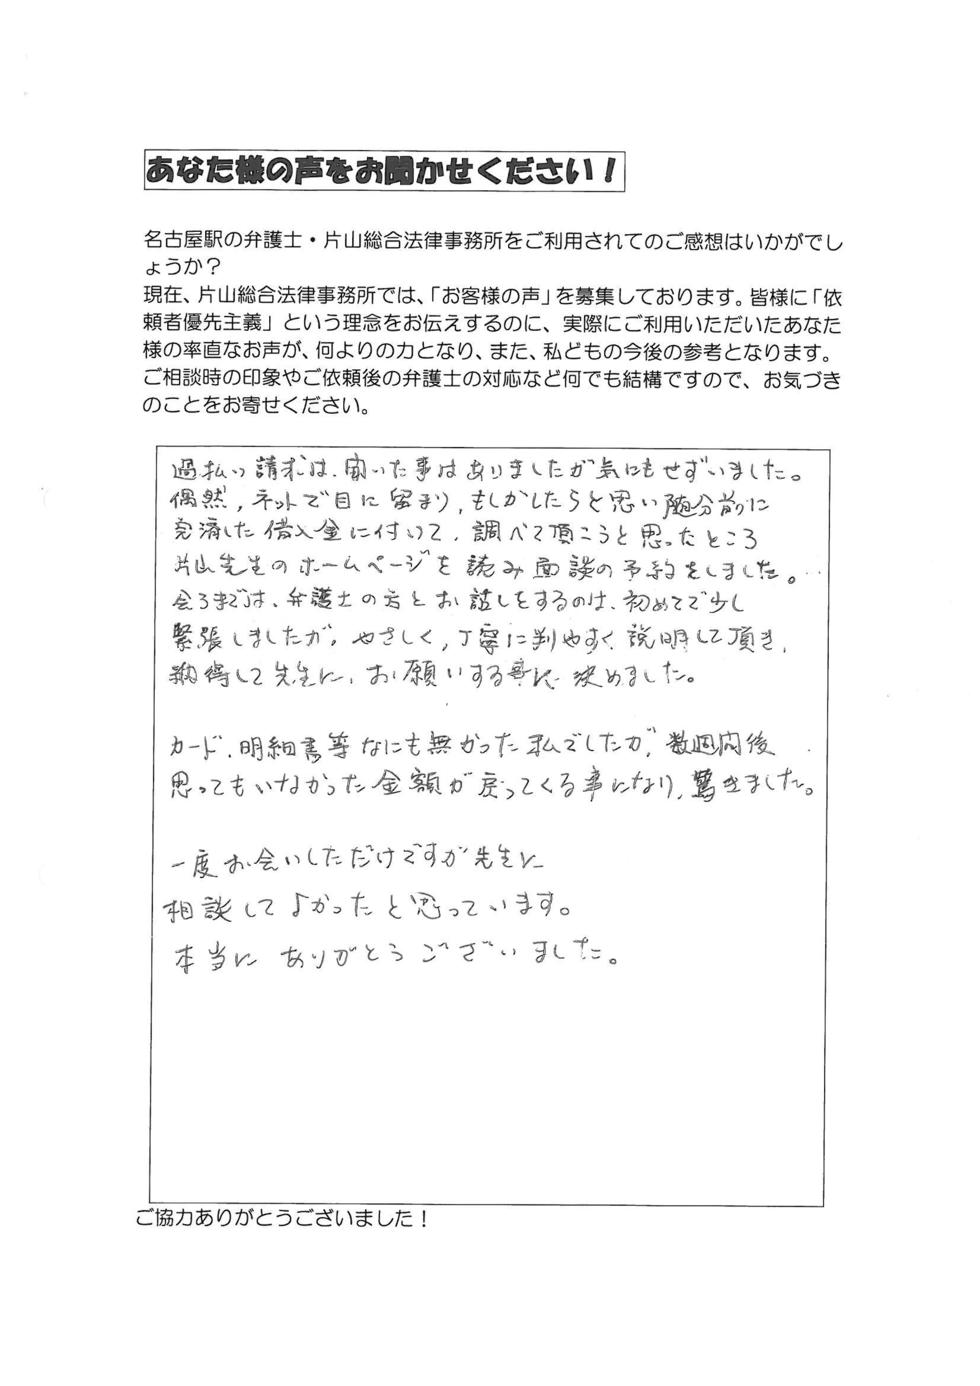 あなた様の声をお聞かせください！
名古屋駅の弁護士・片山総合法律事務所をご利用されてのご感想はいかがでし
ょうか？
現在、片山総合法律事務所では、「お客様の声」を募集しております。皆様に「依
頼者優先主義」という理念をお伝えするのに、実際にご利用いただいたあなた
様の率直なお声が、何よりの力となり、また、私どもの今後の参考となります。
ご相談時の印象やご依頼後の弁護士の対応など何でも結構ですので、お気づき
のことをお寄せください。
過払い請求は、聞いた事はありましたが気にもせずいました。
偶然、ネットで目に留まり、もしかしたらと思い随分前に
完済した借入金に付いて、調べて頂こうと思ったところ
片山先生のホームページを読み面談の予約をしました。
会うまでは、弁護士の方とお話しをするのは、初めてで少し
緊張しましたが、やさしく、丁寧に判やすく説明して頂き、
納得して先生に、お願いする事に決めました。
カード、明細書等なにも無かった私でしたが、数週間後
思ってもいなかった金額が戻ってくる事になり、驚きました。
一度お会いしただけですが先生に
相談してよかったと思っています。
本当にありがとうございました。
ご協力ありがとうございました！